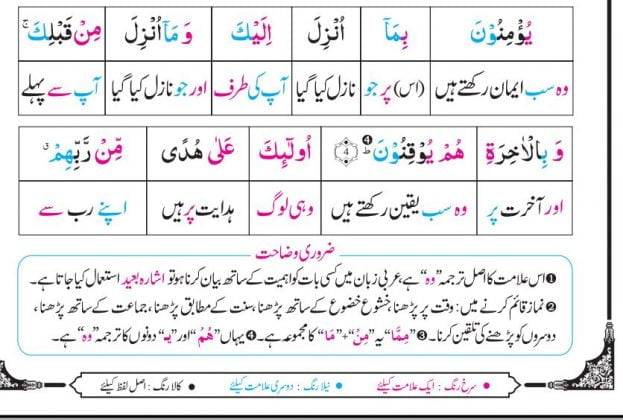 يُؤْمِنُوْنَ بِمَآ اُنْزِلَ اِلَيْكَ وَ مَآ اُنْزِلَ مِنْ قَبْلِكَ ۚ
وہ سب ایمان رکھتے ہیں (اس) پر جو نازل کیا گیا آپ کی طرف اور جو نازل کیا گیا آپ سے پہلے
وَ بِالْاٰخِرَةِ هُمْ يُوْقِنُوْنَ ❹ؕ ﴿4﴾ اُولٰٓئِكَ عَلٰى هُدًى مِّنْ رَّبِّهِمْ ۗ
اور آخرت پر وہ سب یقین رکھتے ہیں وہی لوگ ہدایت پر ہیں اپنے رب سے
ضروری وضاحت
❶ اس علامت کا اصل ترجمہ ”وہ“ ہے، عربی زبان میں کسی بات کو اہمیت کے ساتھ بیان کرنا ہو تو اشارہ بعید استعمال کیا جاتا ہے۔
❷ نماز قائم کرنے میں: وقت پر پڑھنا، خشوع خضوع کے ساتھ پڑھنا، سنت کے مطابق پڑھنا، جماعت کے ساتھ پڑھنا،
دوسروں کو پڑھنے کی تلقین کرنا۔ ❸ ”مِمَّا“ یہ ”مِنْ“+”مَا“ کا مجموعہ ہے۔ ❹ یہاں ”هُمْ“ اور ”يـ“ دونوں کا ترجمہ ”وہ“ ہے۔
• سرخ رنگ: ایک علامت کیلئے • نیلا رنگ: دوسری علامت کیلئے • کالا رنگ: اصل لفظ کیلئے